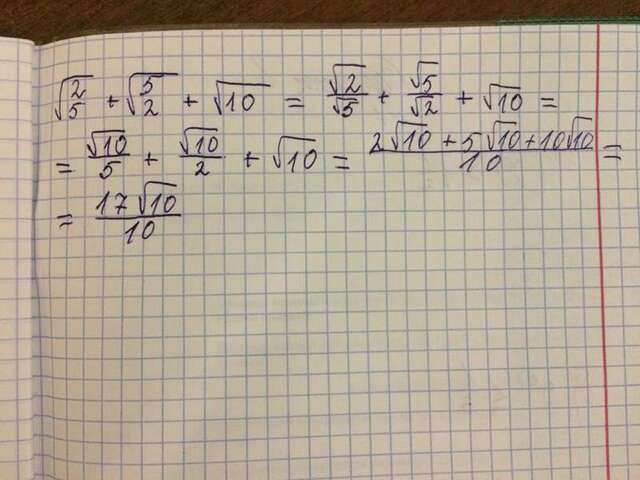 √2/5 + √5/2 + √10 = √2/√5 + √5/√2 + √10 =
= √10/5 + √10/2 + √10 = 2√10 + 5√10 + 10√10/10 =
= 17√10/10